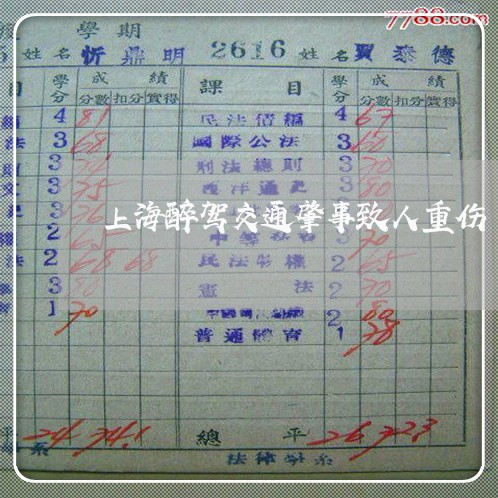 7788.com
學期
5 姓名 忻鼎明 2616 姓名 賈泰德
目 學分 成績 課目 學分 成績
分數 扣分 實得 分數 扣分 實得
4 81 民法債編 4 67
法 3 68 國際公法 3 60
則 3 刑法總則 3 70
3 75 西洋通史 3 80
上海醉驾交通肇事致人重伤
2 65 3 70
法 2 68 68 民法物權 2 65
3 80 憲法 2 70
育 1 70 2 80
普通體育 1 78
平 24 74.1 總平 26 72.3
系 法律學系